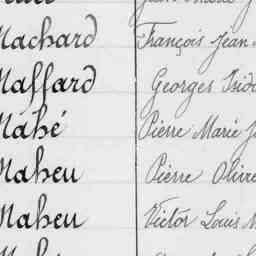 Machard François Jean
Maffard Georges Isido
Mahé Pierre Marie J
Maheu Pierre Olivi
Maheu Victor Louis M